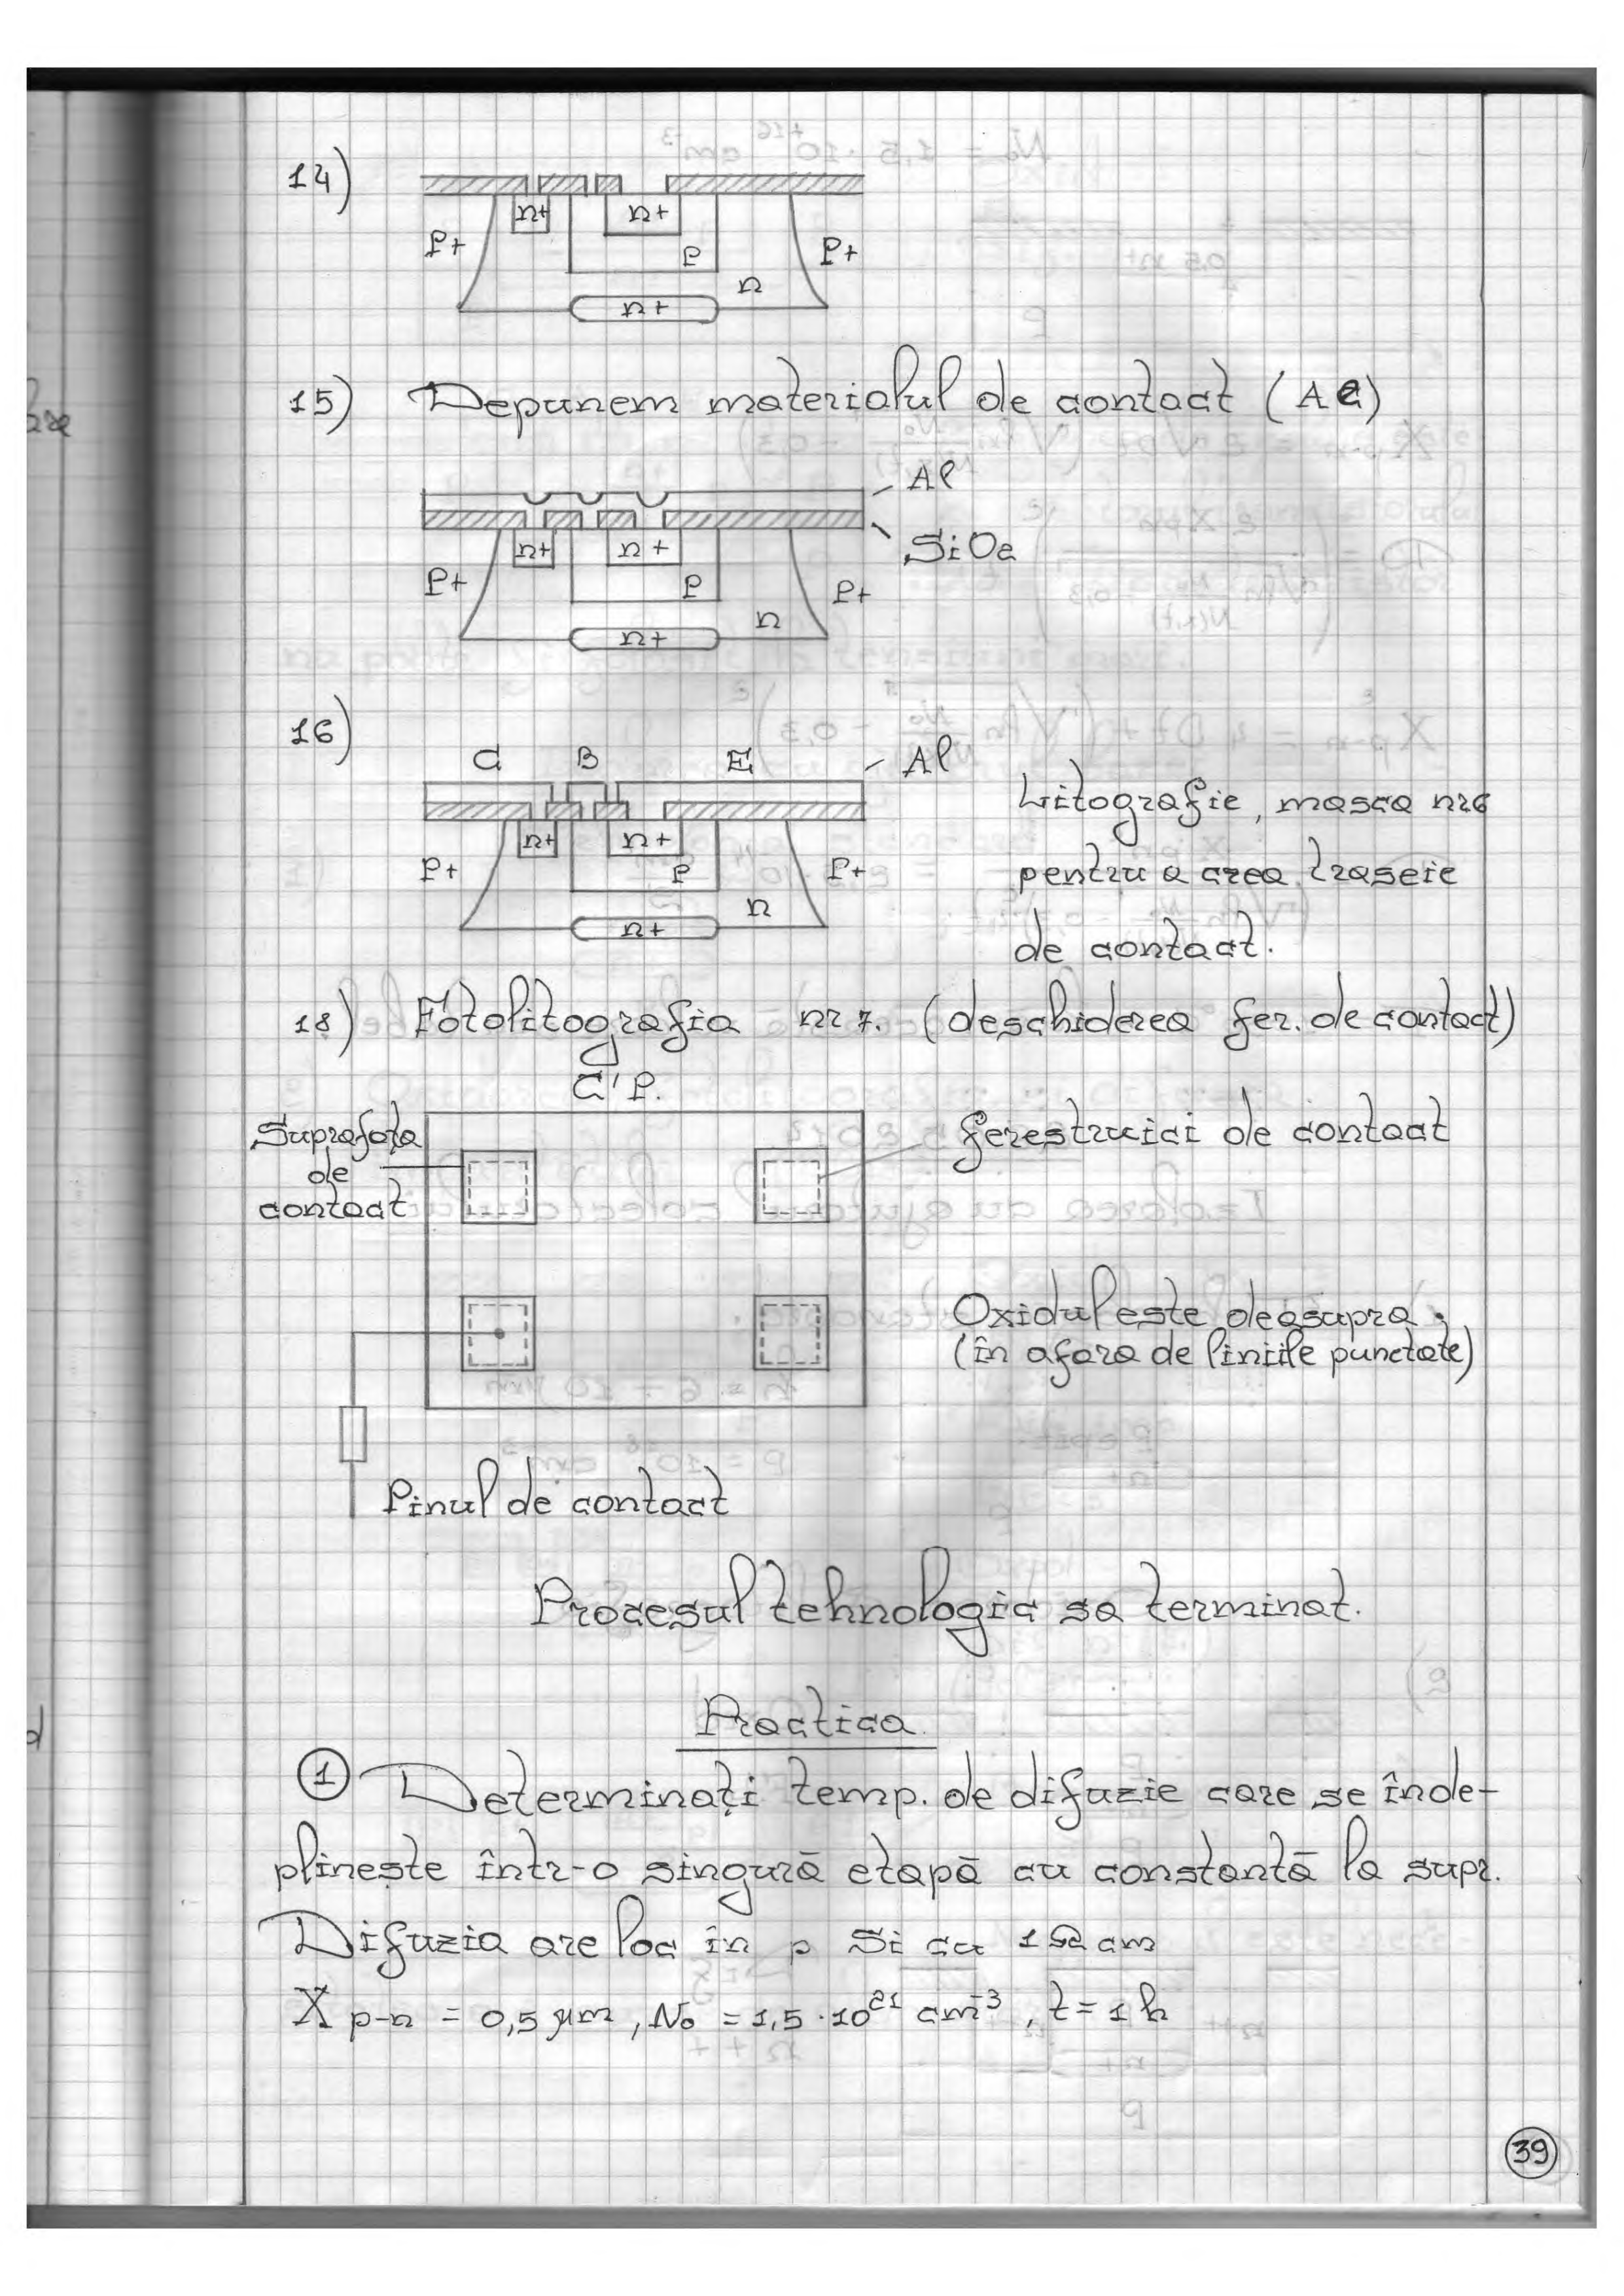 14)
n+ n+
P+ P P+
n
n+
15) Depunem materialul de contact (Al)
Al
SiO2
n+ n+
P+ P P+
n
n+
16)
C B E Al
n+ n+
P+ P P+
n
n+
Litografie, masca nr6
pentru a crea traseie
de contact.
18) Fotolitografia nr 7. (deschiderea fer. de contact)
C'P.
Suprafața
de
contact
ferestruici de contact
Oxidul este deasupra.
(în afara de liniile punctate)
Pinul de contact
Procesul tehnologic sa terminat.
Practica
1 Determinați temp. de difuzie care se înde-
plinește într-o singură etapă cu constantă la supr.
Difuzia are loc în p Si cu 1 Ω cm
X p-n = 0,5 μm, No = 1,5 · 10²¹ cm⁻³, t = 1 h
39